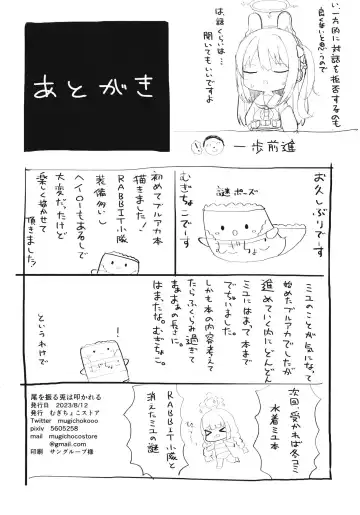 い、一方的に対話を拒否するのも
良くないと思うので
は、話くらいは…
聞いてもいいですよ
一歩前進
あとがき
お久しぶりでーす
むぎちょこでーす
謎ポーズ
初めてブルアカ本
描きました!
RABBIT小隊
装備多いし
ヘイローもあるしで
大変だったけど
楽しく描かせて
頂きました!
ミユのことが気になって
始めたブルアカでしたが
進めていく内にどんどん
ミユにはまって本まで
でちゃいました。
しかも本の内容考えて
たらふくらみ過ぎて
まあまあの長さに。
はまたな。むぎちょこ。
!
というわけで
次回受かれば冬コミ
水着ミユ本
RABBIT小隊と
消えたミユの謎
尾を振る兎は叩かれる
発行日 2023/8/12
発行 むぎちょこストア
Twitter mugichokooo
pixiv 5605258
mail mugichocostore
@gmail.com
印刷 サングループ様